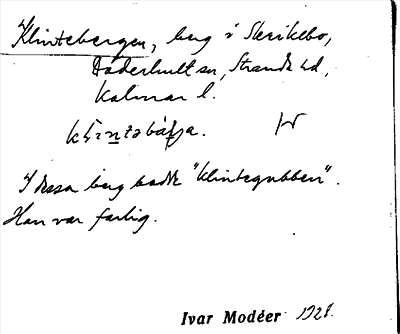 Klintebergen, berg i Skrikebo,
Döderhult sn, Stranda hd,
Kalmar l.
I dessa berg bodde "klintegubben".
Han var farlig.
Ivar Modéer 1928.